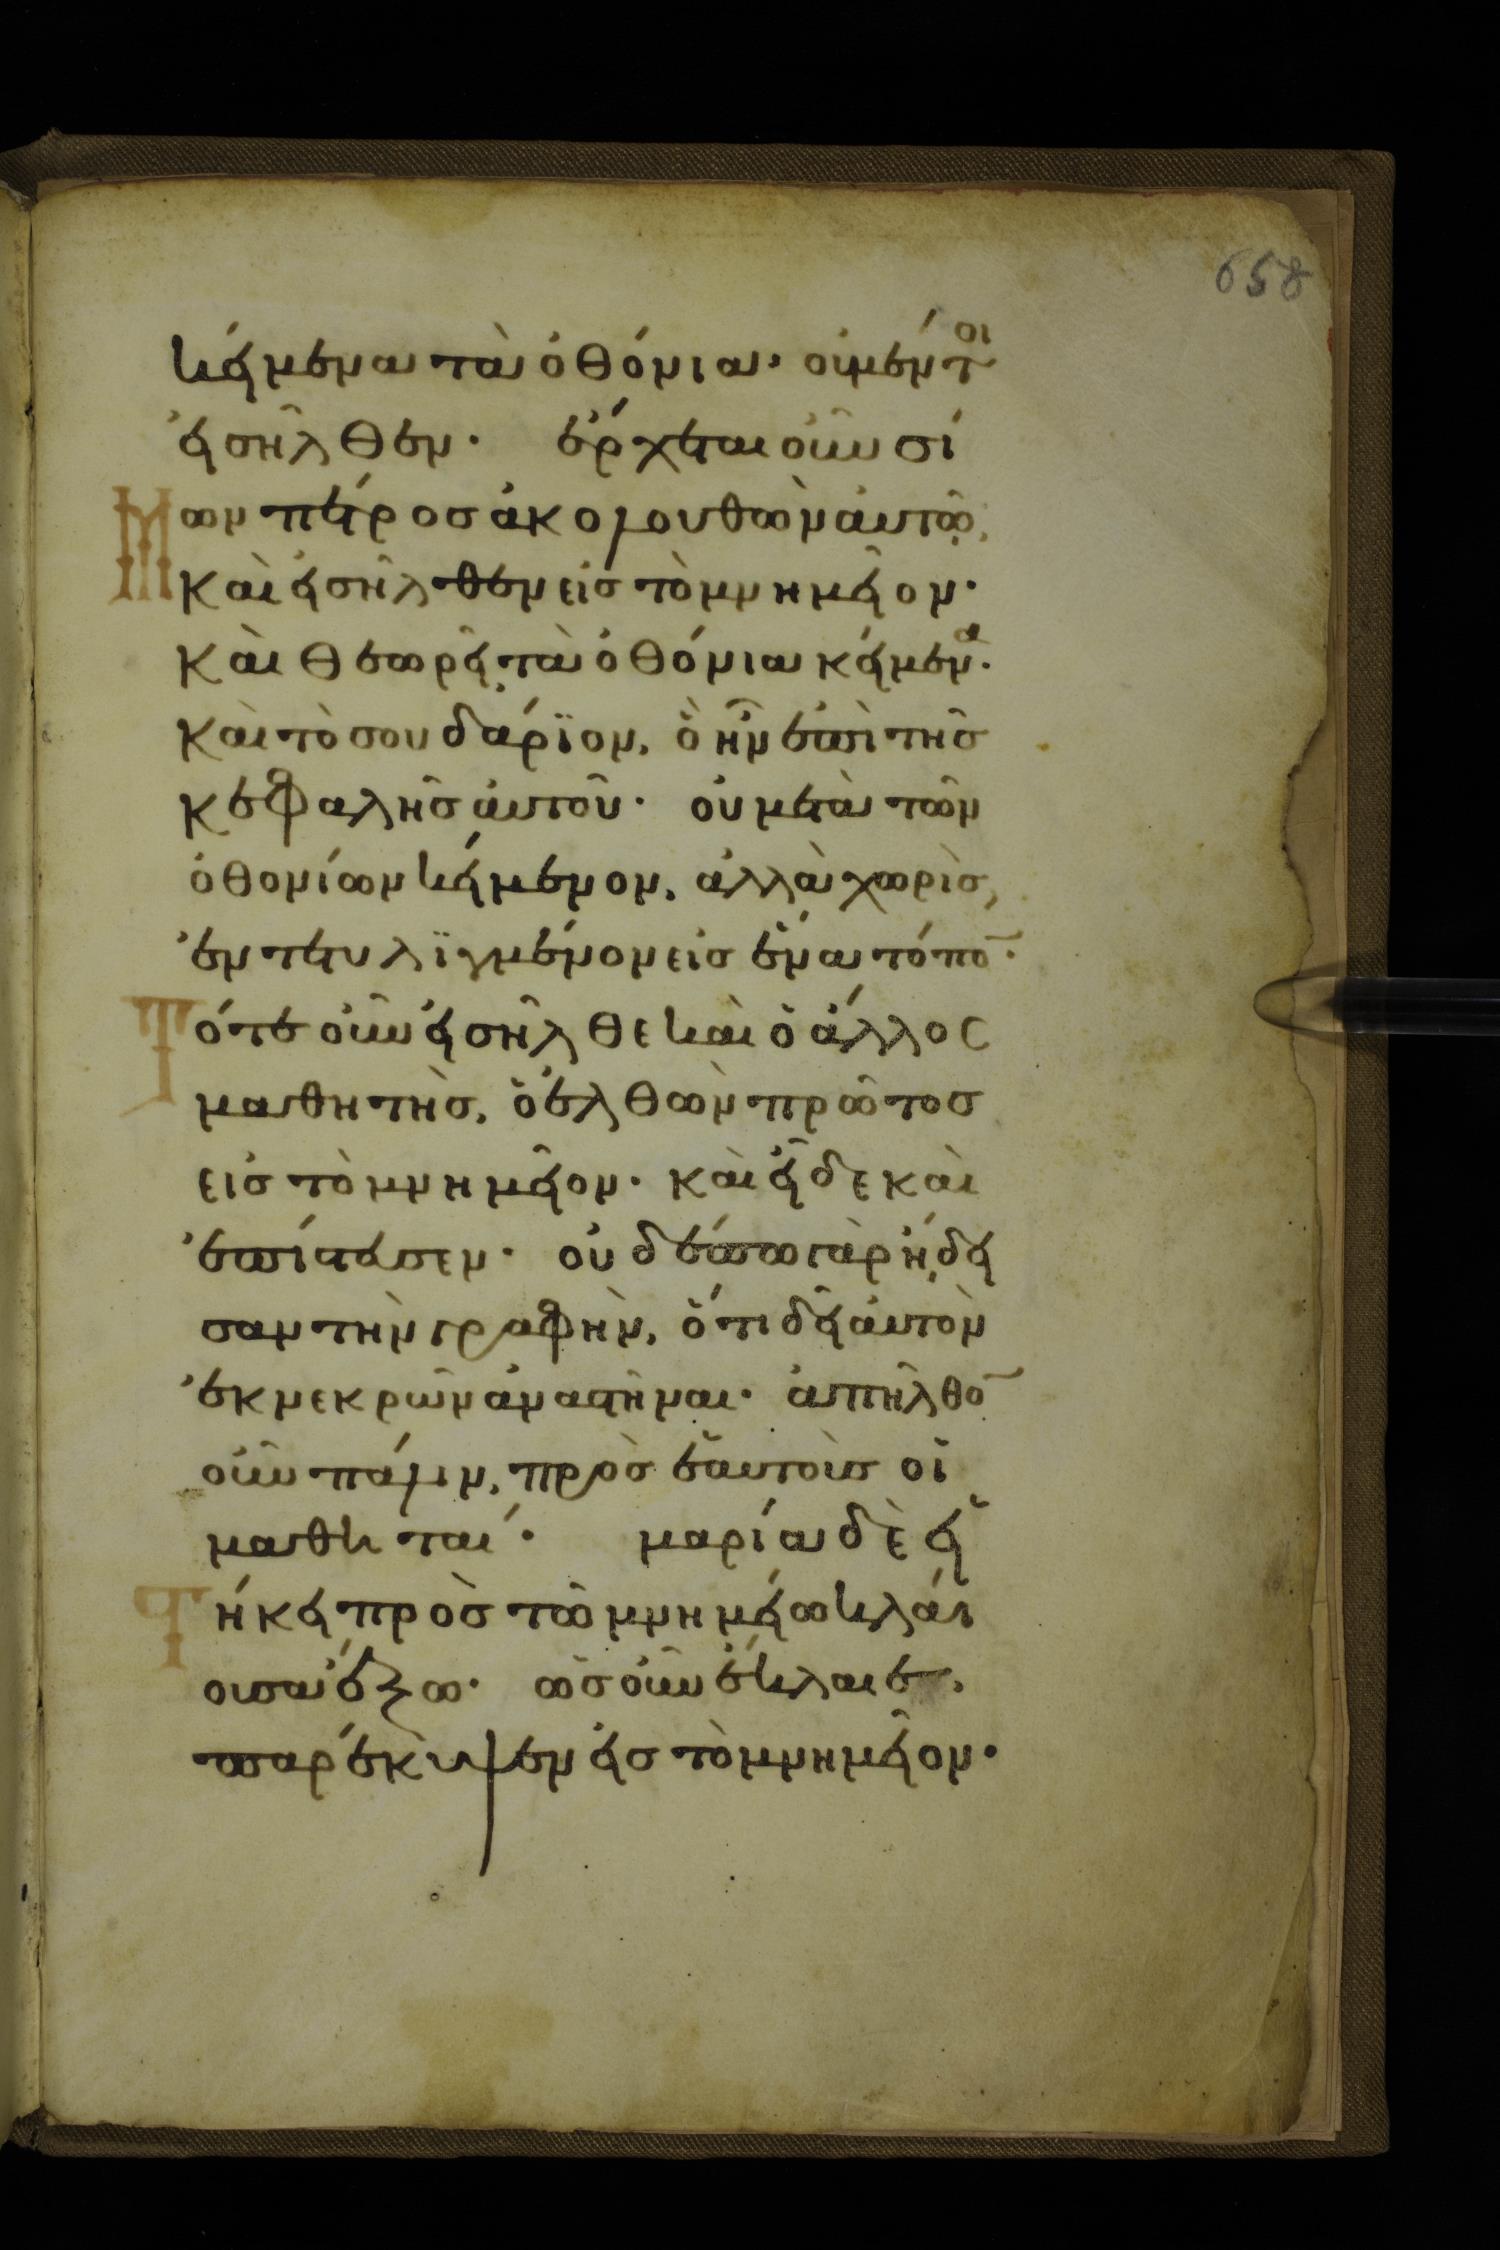 658
κείμενα τὰ ὀθόνια· οὐ μέντοι
εἰσῆλθεν· ἔρχεται οὖν σί
Μων πέτρος ἀκολουθῶν αὐτῷ,
καὶ εἰσῆλθεν εἰς τὸ μνημεῖον·
καὶ θεωρεῖ τὰ ὀθόνια κείμενα·
καὶ τὸ σουδάρϊον, ὃ ἦν ἐπὶ τῆσ
κεφαλῆς αὐτοῦ· οὐ μετὰ τῶν
ὀθονίων κείμενον, ἀλλὰ χωρὶσ,
ἐντετυλϊγμένον εἰς ἕνα τόπο̅·
Τότε οὖν εἰσῆλθε καὶ ὁ ἄλλος
μαθητὴσ, ὁ ἐλθὼν πρῶτοσ
εἰς τὸ μνημεῖον· καὶ εἶδε καὶ
ἐπίστευσεν· οὐδέπω γὰρ ἤ̣δει
σαν τὴν γραφὴν, ὅτι δεῖ αὐτὸν
ἐκ νεκρῶν ἀναστῆναι· ἀπῆλθο̅
οὖν πάλιν, πρὸς ἑαυτοὺς οἱ
μαθηταί· μαρία δὲ εἱ
Τήκει πρὸς τῶ μνημείω κλαί
ουσα ἔξω· ὡς οὖν ἔκλαιε,
παρέκυψεν εἰς τὸ μνημεῖον·